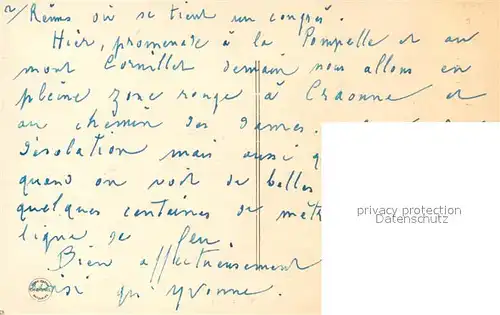 2/ Reims où se tient un congrès.
Hier, promenade à la Pompelle et au
mont Cornillet demain nous allons en
pleine zone rouge à Craonne et
au chemin des dames.
désolation mais aussi
quand on voit de belles
quelques centaines de
ligne de feu.
Bien affectueusement
qu'Yvonne.
privacy protection
Datenschutz